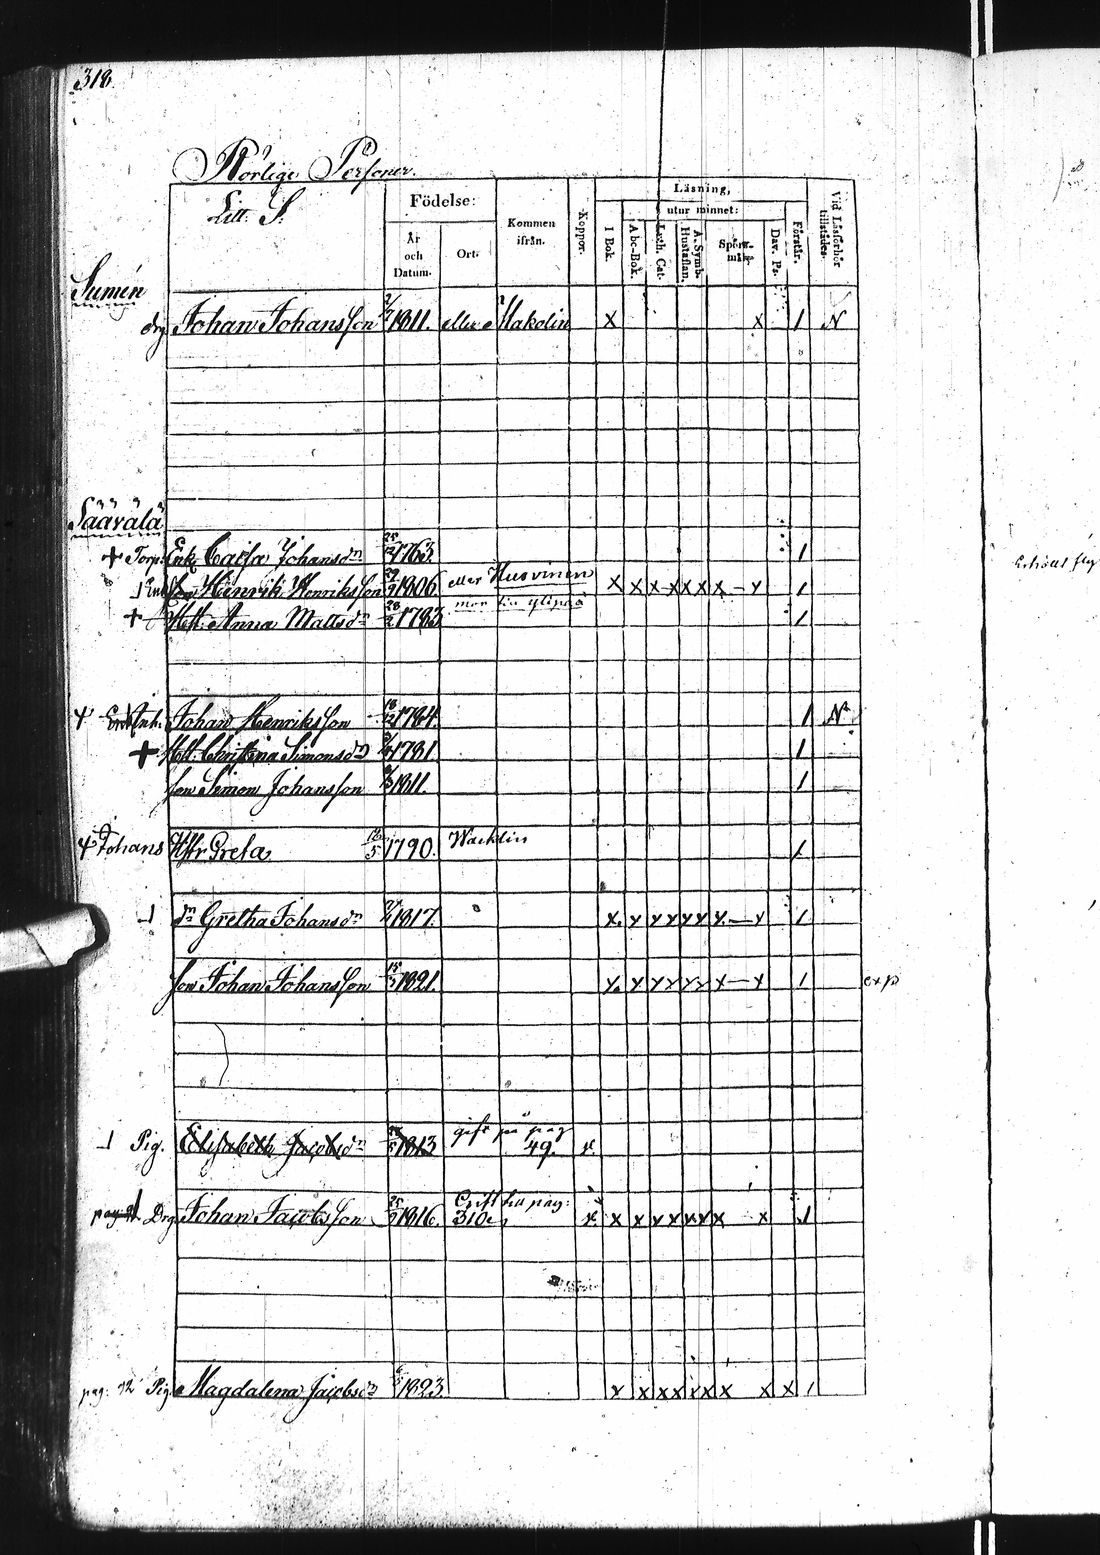 318.
Rörlige Personer.
Litt. S.
Födelse:
År och Datum.
Ort.
Kommen ifrån.
Koppor.
Läsning,
utur minnet:
I Bok.
Abc-Bok.
Luth. Cat.
A. Symb. Hustaflan.
Spörs-mål.
Dav. Ps.
Förstår.
Vid Läsförhör tillstädes.
Sumén
drg Johan Johansson 1811. eller Hakolin X X 1 N
Säävälä
+ Torp: Enk. Caisa Johansdn 1763. 1
Henrik Henriksson 29 1806. eller Husvinen X X X X X X X X – X 1
+ Hu. Anna Mattsdn 28 1783 1
Inh. Johan Henriksson 1784. 1 N
+ Hu. Christina Simonsdn 1781 1
son Simon Johansson 1811. 1
Johans Hstr Greta 1790. Wacklin 1
dn Gretha Johansdn 1817. X X X X X X X X – X 1
son Johan Johansson 15 1821. X X X X X X X – X 1 exp
Pig. Elisabeth Jacobsdn 1813 gift på pag 49. x
Drg Johan Jacobsson 25 1816. Gift till pag: 310 x X X X X X X X X 1
pag: 72 Pig. Magdalena Jacobsdn 1823 X X X X X X X X X 1